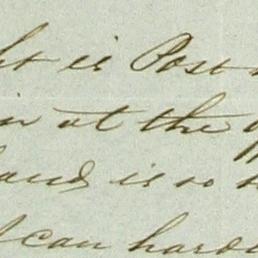 ht is Post
in at the
hand is so
I can hard